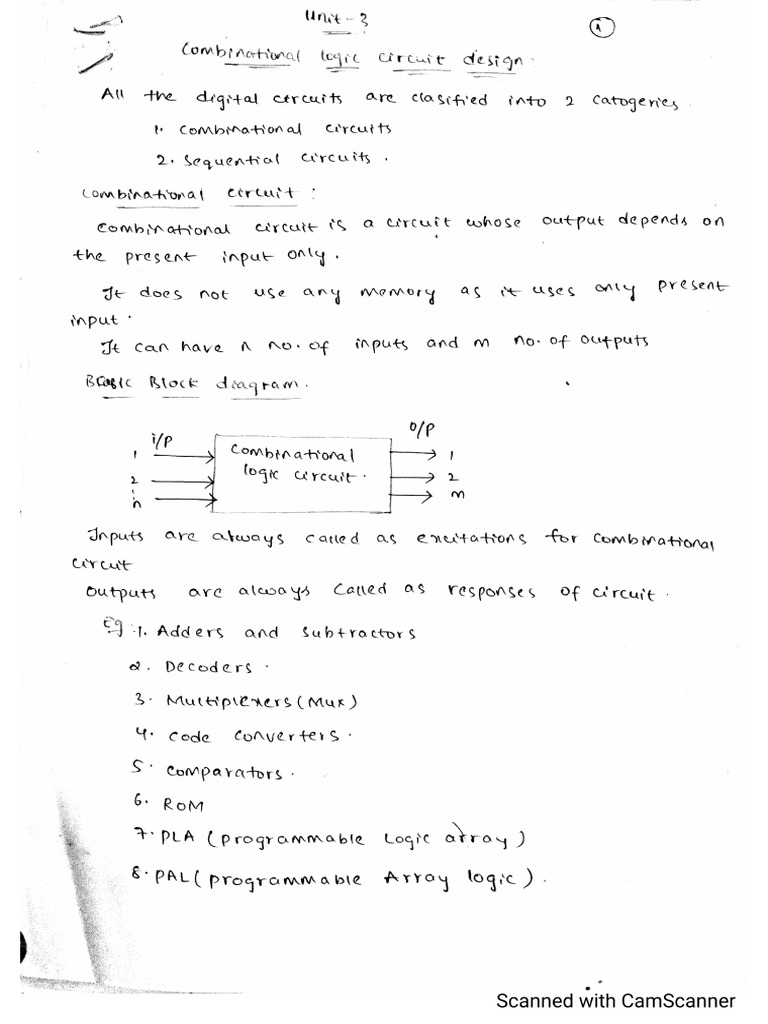 Unit-3
A
Combinational logic circuit design.
All the digital circuits are clasified into 2 catogeries.
1. Combinational circuits
2. Sequential circuits.
Combinational circuit:
Combinational circuit is a circuit whose output depends on
the present input only.
It does not use any memory as it uses only present
input.
It can have n no. of inputs and m no. of outputs
Basic Block diagram.
i/p
o/p
1
Combinational
1
2
logic circuit.
2
n
m
Inputs are always called as excitations for combinational
circuit
Outputs are always called as responses of circuit.
Eg: 1. Adders and subtractors
2. Decoders.
3. Multiplexers (Mux)
4. Code converters.
5. Comparators.
6. ROM
7. PLA (programmable Logic array)
8. PAL (programmable Array logic).
Scanned with CamScanner